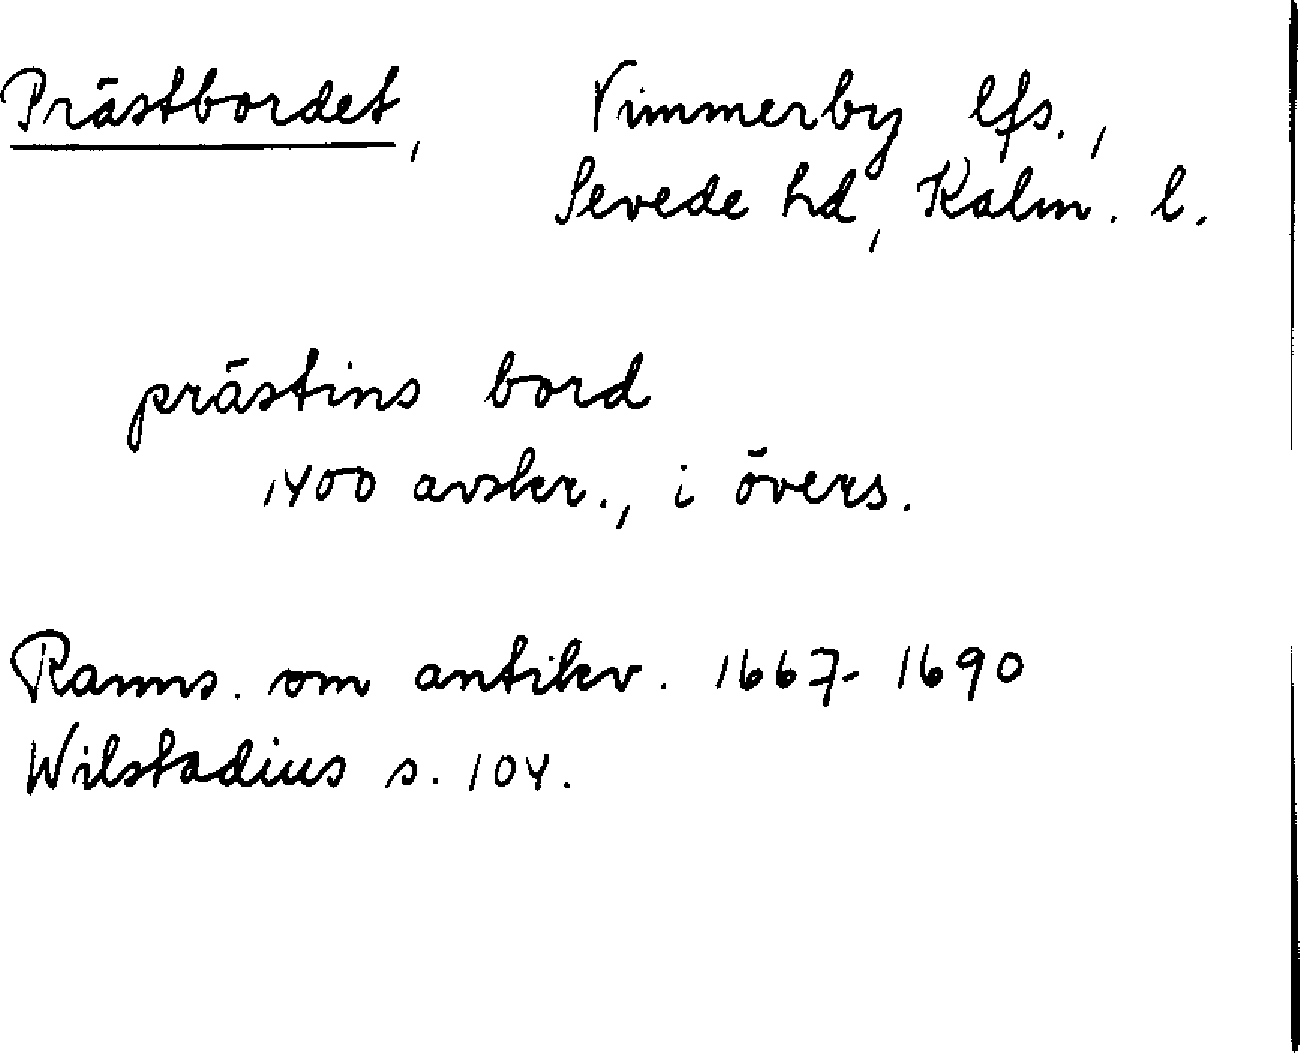 Prästbordet, Vimmerby lfs.,
Sevede hd, Kalm. l.
prästins bord
1400 avskr., i övers.
Ranns. om antikv. 1667-1690
Wilstadius s. 104.